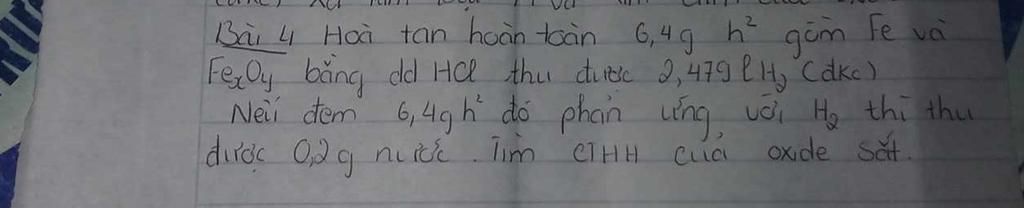 Bài 4 Hoà tan hoàn toàn 6,4g h² gồm Fe và
FexOy bằng dd HCl thu được 2,479 l H₂ (đkc)
Nếu đem 6,4g h² đó phản ứng với H₂ thì thu
được 0,2g nước. Tìm CTHH của oxide sắt.